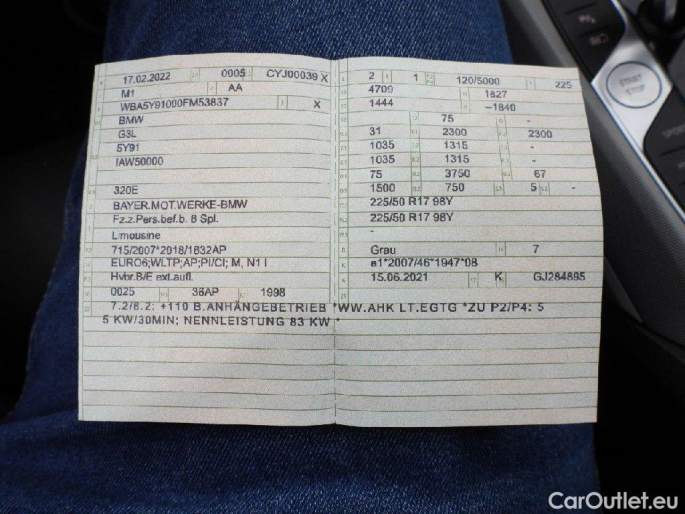 17.02.2022 0005 CYJ00039 X
M1 AA
WBA5Y91000FM53837 X
BMW
G3L
5Y91
IAW50000
320E
BAYER.MOT.WERKE-BMW
Fz.z.Pers.bef.b. 8 Spl.
Limousine
715/2007*2018/1832AP
EURO6;WLTP;AP;PI/CI; M, N1 I
Hybr.B/E ext.aufl.
0025 36AP 1998
2 1 120/5000 225
4709 1827
1444 -1840
75 -
31 2300 2300
1035 1315 -
1035 1315 -
75 3750 67
1500 750 5 -
225/50 R17 98Y
225/50 R17 98Y
-
Grau 7
e1*2007/46*1947*08
15.06.2021 K GJ284895
7.2/8.2: +110 B.ANHÄNGEBETRIEB *WW.AHK LT.EGTG *ZU P2/P4: 5
5 KW/30MIN; NENNLEISTUNG 83 KW *
START
STOP
SPORT
CarOutlet.eu